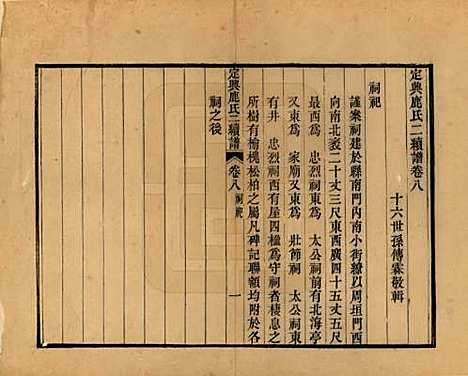 定興鹿氏二續譜卷八
十六世孫傳霖敬輯
祠祀
謹案祠建於縣南門內南小街繚以周垣門西
向南北袤二十丈三尺東西廣四十五丈五尺
最西為 忠烈祠東為 太公祠前有北海亭
又東為 家廟又東為 壯節祠 太公祠東
有井 忠烈祠西有屋四楹為守祠者棲息之
所樹有榆槐松柏之屬凡碑記聯額均附於各
祠之後
定興鹿氏二續譜 卷八 祠祀 一